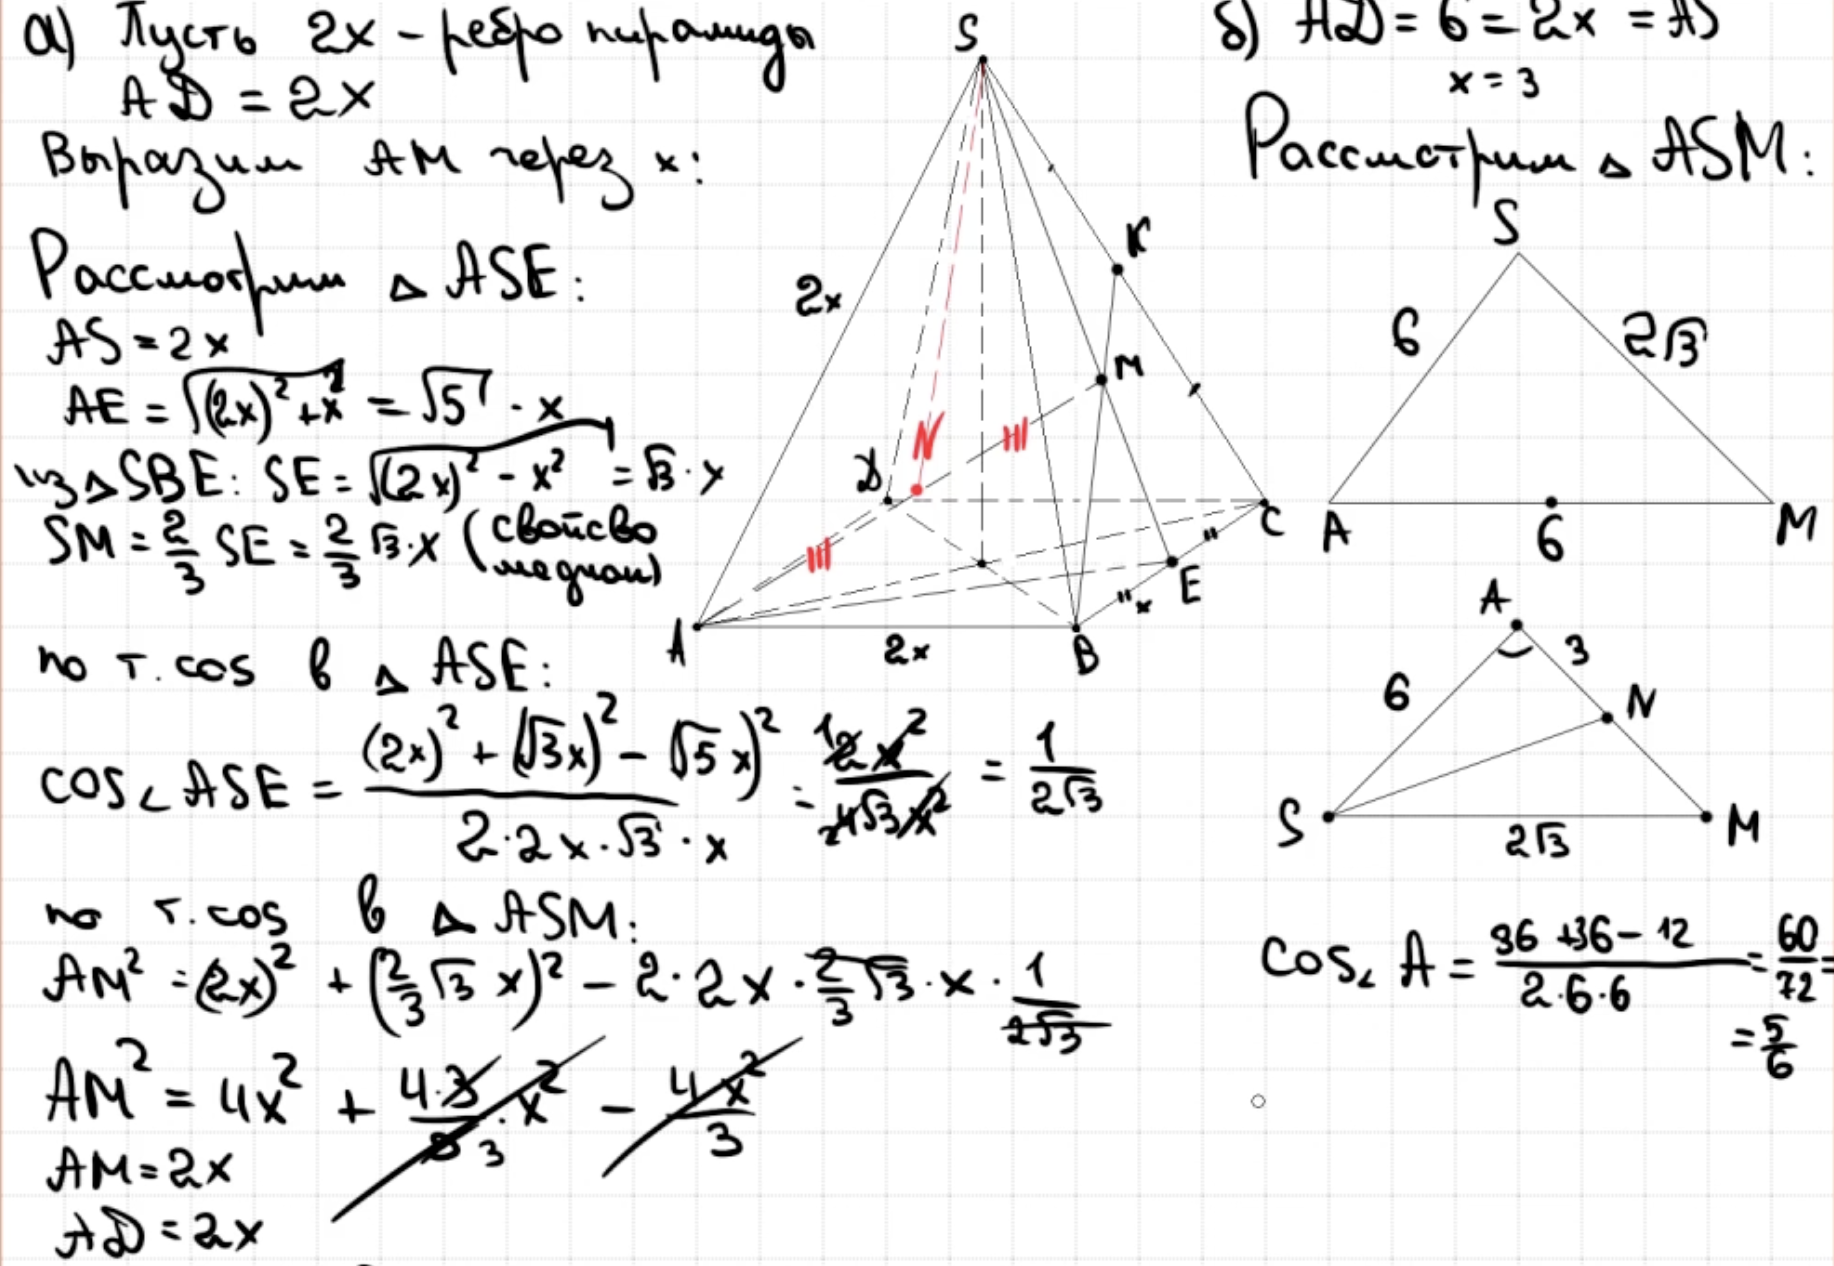 а) Пусть 2x - ребро пирамиды
AD = 2x
Выразим AM через x:
Рассмотрим △ ASE:
AS = 2x
AE = √((2x)² + x²) = √5 · x
из △ SBE: SE = √((2x)² - x²) = √3 · x
SM = 2/3 SE = 2/3 √3 · x (свойсво
медиан)
по т. cos в △ ASE:
cos∠ ASE = ((2x)² + (√3x)² - √5 x)²)/(2·2x·√3·x) = 2x²/4√3x² = 1/(2√3)
по т. cos в △ ASM:
AM² = (2x)² + (2/3 √3 x)² - 2·2x · 2/3 √3 · x · 1/(2√3)
AM² = 4x² + 4·3/9 · x² - 4x²/3
AM = 2x
AD = 2x
S
K
2x
M
N
D
C
E
x
A
2x
B
б) AD = 6 = 2x = AS
x = 3
Рассмотрим △ ASM:
S
6
2√3
A
6
M
A
3
6
N
S
2√3
M
cos∠ A = (36 + 36 - 12)/(2·6·6) = 60/72 =
= 5/6